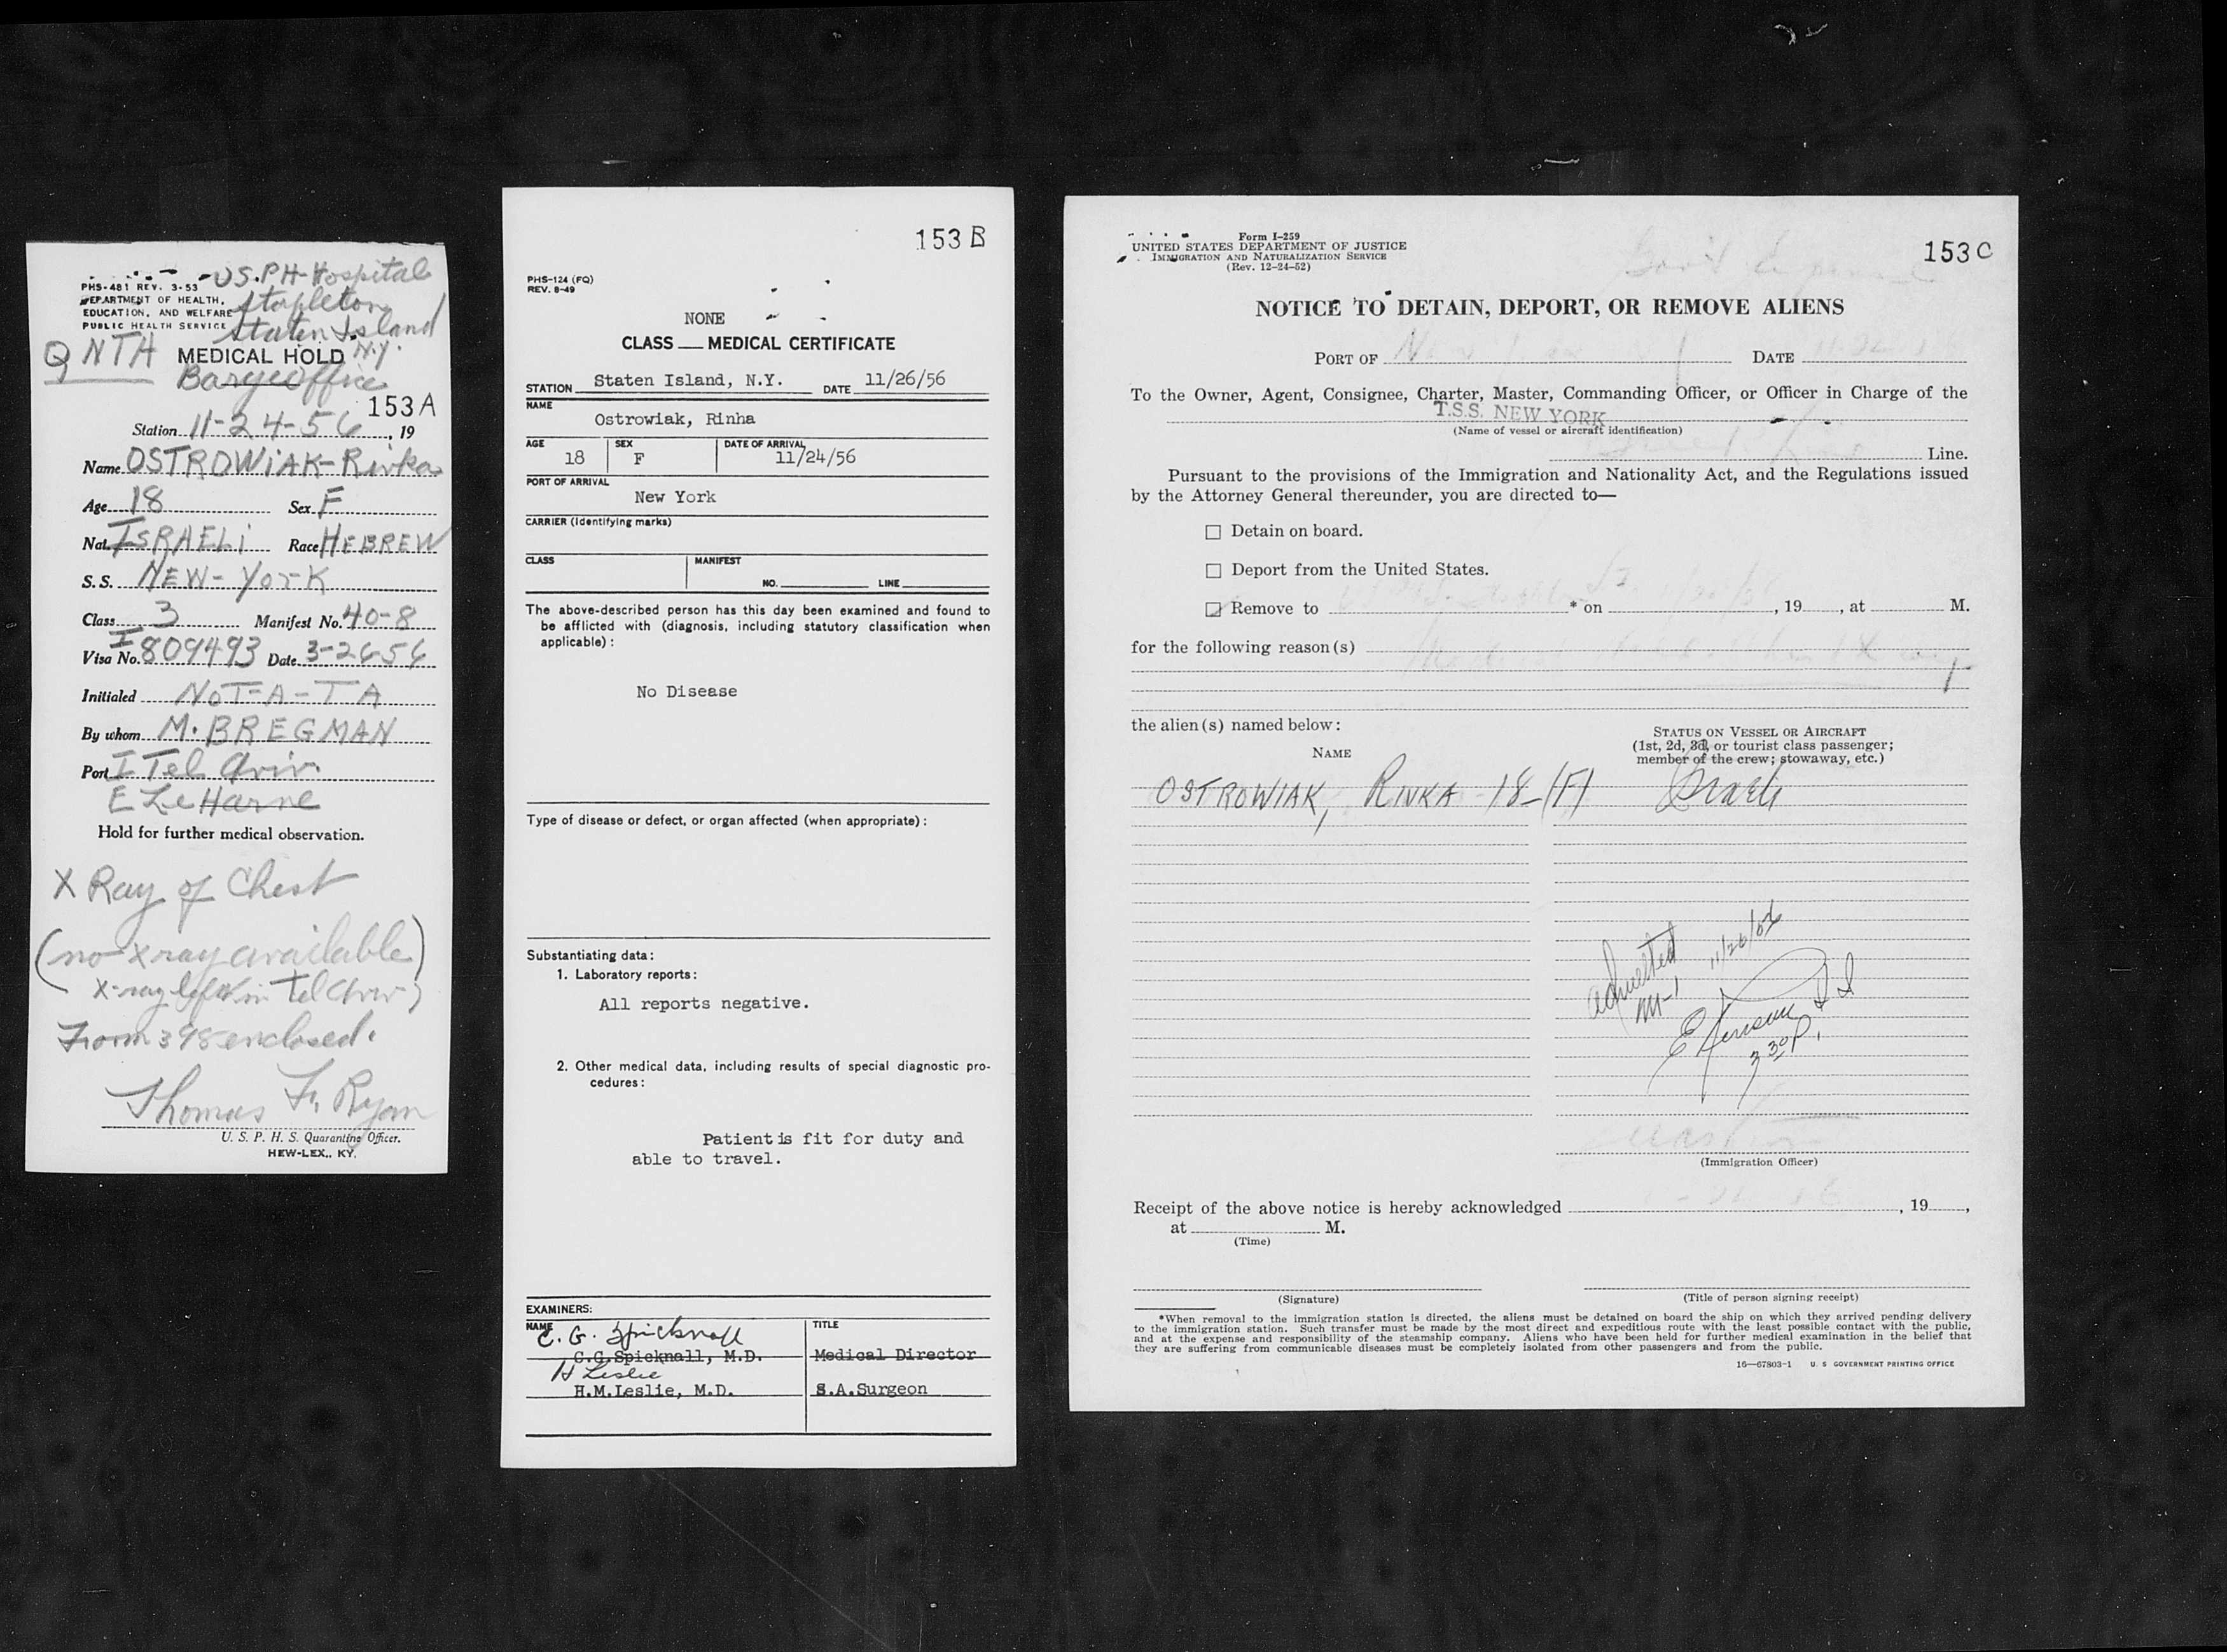 PHS-481 REV. 3-53
DEPARTMENT OF HEALTH,
EDUCATION, AND WELFARE
PUBLIC HEALTH SERVICE
U.S.P.H-Hospital
Stapleton
Staten Island
N.Y.
Q NTA
MEDICAL HOLD
Bargeoffice
153A
Station 11-24-56, 19
Name OSTROWiAK-Rivka
Age 18 Sex F
Nat. ISRAELi Race HEBREW
S. S. NEW-YorK
Class 3 Manifest No. 40-8
Visa No. I 809493 Date 3-2656
Initialed NoT-A-TA
By whom M. BREGMAN
Port I Tel Aviv
E Le Harne
Hold for further medical observation.
X Ray of Chest
(no xray available)
X-ray left in Tel Aviv)
From 398 enclosed.
Thomas F. Ryan
U. S. P. H. S. Quarantine Officer.
HEW-LEX., KY.
153 B
PHS-124 (FQ)
REV. 8-49
NONE
CLASS MEDICAL CERTIFICATE
STATION Staten Island, N.Y. DATE 11/26/56
NAME
Ostrowiak, Rinha
AGE SEX DATE OF ARRIVAL
18 F 11/24/56
PORT OF ARRIVAL
New York
CARRIER (Identifying marks)
CLASS MANIFEST
NO. LINE
The above-described person has this day been examined and found to
be afflicted with (diagnosis, including statutory classification when
applicable):
No Disease
Type of disease or defect, or organ affected (when appropriate):
Substantiating data:
1. Laboratory reports:
All reports negative.
2. Other medical data, including results of special diagnostic pro-
cedures:
Patient is fit for duty and
able to travel.
EXAMINERS:
NAME TITLE
C. G. Spicknall
C.G.Spicknall, M.D. Medical Director
H Leslie
H.M.Leslie, M.D. S.A.Surgeon
Form I-259
UNITED STATES DEPARTMENT OF JUSTICE
IMMIGRATION AND NATURALIZATION SERVICE
(Rev. 12-24-52)
153 C
NOTICE TO DETAIN, DEPORT, OR REMOVE ALIENS
PORT OF DATE
To the Owner, Agent, Consignee, Charter, Master, Commanding Officer, or Officer in Charge of the
T.S.S. NEW YORK
(Name of vessel or aircraft identification)
Line.
Pursuant to the provisions of the Immigration and Nationality Act, and the Regulations issued
by the Attorney General thereunder, you are directed to—
☐ Detain on board.
☐ Deport from the United States.
☐ Remove to * on , 19 , at M.
for the following reason(s)
the alien(s) named below:
NAME
STATUS ON VESSEL OR AIRCRAFT
(1st, 2d, 3d, or tourist class passenger;
member of the crew; stowaway, etc.)
OSTROWIAK, RIVKA 18-(F) Israeli
Admitted 11/26/56
M-1
3 30 P.
(Immigration Officer)
Receipt of the above notice is hereby acknowledged , 19 ,
at M.
(Time)
(Signature) (Title of person signing receipt)
*When removal to the immigration station is directed, the aliens must be detained on board the ship on which they arrived pending delivery
to the immigration station. Such transfer must be made by the most direct and expeditious route with the least possible contact with the public,
and at the expense and responsibility of the steamship company. Aliens who have been held for further medical examination in the belief that
they are suffering from communicable diseases must be completely isolated from other passengers and from the public.
16—67803-1 U. S GOVERNMENT PRINTING OFFICE